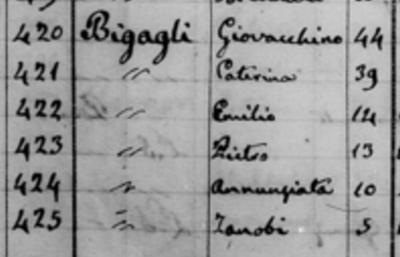 420 Bigagli Giovacchino 44
421 " Caterina 39
422 " Emilio 14
423 " Pietro 13
424 " Annunziata 10
425 " Zanobi 5